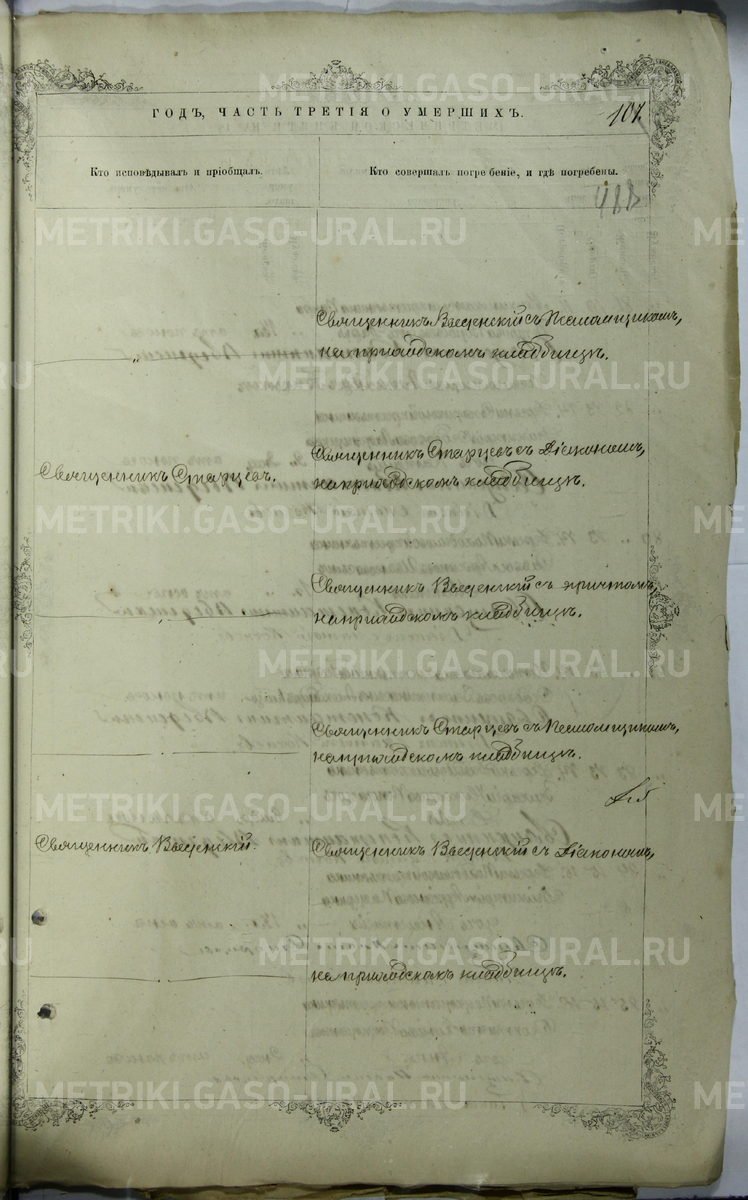 ГОДЪ, ЧАСТЬ ТРЕТІЯ О УМЕРШИХЪ.
107.
Кто исповѣдывалъ и пріобщалъ.
Кто совершалъ погребеніе, и гдѣ погребены.
488
METRIKI.GASO-URAL.RU
Священникъ Введенскій съ Псаломщикомъ,
на приходскомъ кладбищѣ.
Священникъ Старцевъ.
Священникъ Старцевъ съ Діакономъ,
на приходскомъ кладбищѣ.
Священникъ Введенскій съ причтомъ,
на приходскомъ кладбищѣ.
Священникъ Старцевъ съ Псаломщикомъ,
на приходскомъ кладбищѣ.
Священникъ Введенскій.
Священникъ Введенскій съ Діакономъ,
на приходскомъ кладбищѣ.